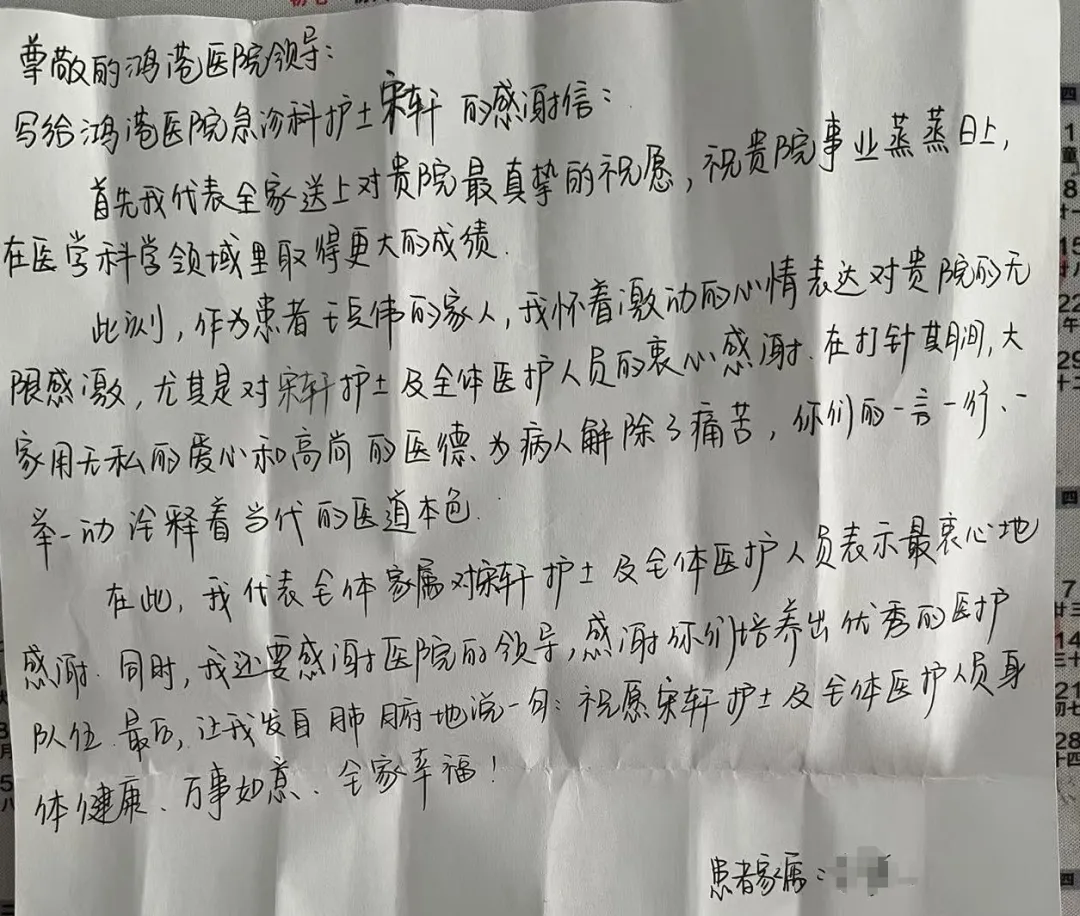 尊敬的鸿港医院领导:
写给鸿港医院急诊科护士宋轩的感谢信:
首先我代表全家送上对贵院最真挚的祝愿,祝贵院事业蒸蒸日上,
在医学科学领域里取得更大的成绩.
此刻,作为患者 伟的家人,我怀着激动的心情表达对贵院的无
限感激,尤其是对宋轩护士及全体医护人员的衷心感谢.在打针其间,大
家用无私的爱心和高尚的医德为病人解除了痛苦,你们的一言一行、一
举一动诠释着当代的医道本色.
在此,我代表全体家属对宋轩护士及全体医护人员表示最衷心地
感谢.同时,我还要感谢医院的领导,感谢你们培养出优秀的医护
队伍.最后,让我发自肺腑地说一句:祝愿宋轩护士及全体医护人员身
体健康、万事如意、全家幸福!
患者家属:
四
1
童
8
廿一
15
廿八
22
午
29
十二
四
7
廿三
14
三十
21
初七
28
十四
四